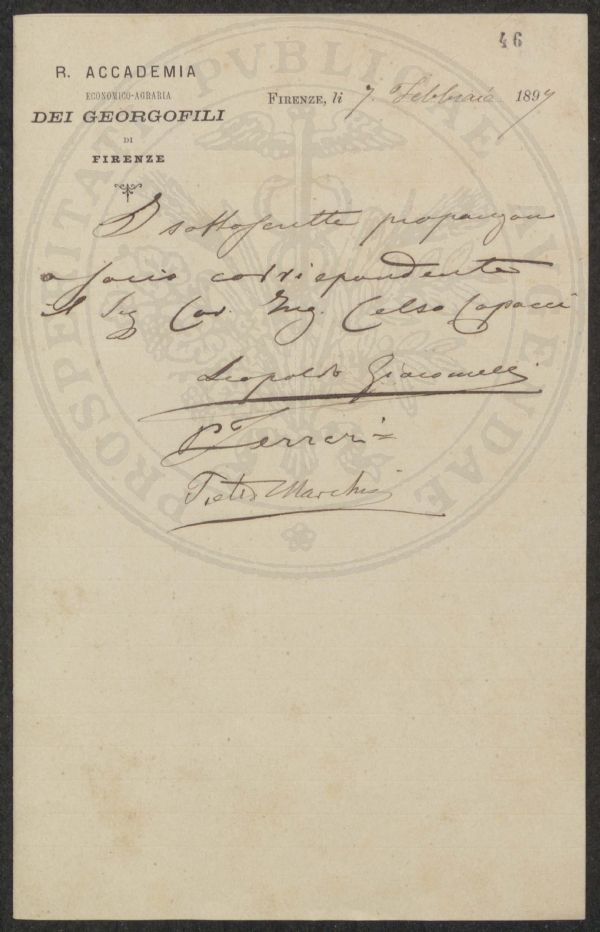 46
R. ACCADEMIA
ECONOMICO-AGRARIA
DEI GEORGOFILI
DI
FIRENZE
FIRENZE, li 7. Febbraio 1897
I sottoscritti propongon
a socio corrispondente
il Sig Cav. Ing. Celso Capacci
Leopoldo Giacomelli
P Ferrari
Pietro Marchi
PROSPERITATI PVBLICAE AVGENDAE